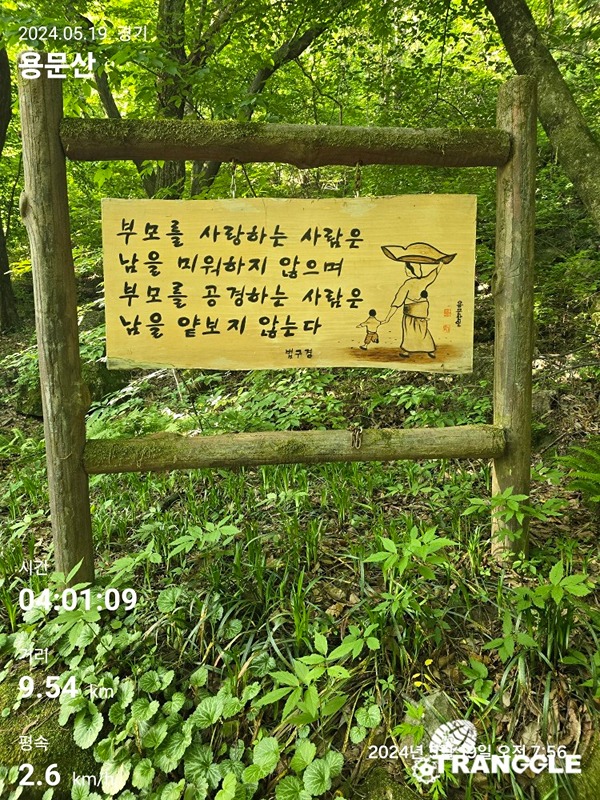 2024.05.19 경기
용문산
부모를 사랑하는 사람은
남을 미워하지 않으며
부모를 공경하는 사람은
남을 얕보지 않는다
범구경
시간
04:01:09
거리
9.54 km
평속
2.6 km/h
오전 7:56
TRANGGLE